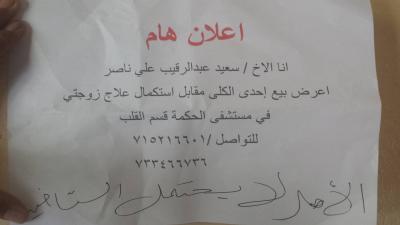 اعلان هام
انا الاخ / سعيد عبدالرقيب علي ناصر
اعرض بيع إحدى الكلى مقابل استكمال علاج زوجتي
في مستشفى الحكمة قسم القلب
للتواصل /٧١٥٢١٦٦٠١
٧٣٣٤٦٦٧٣٦
الأمر لا يحتمل التأخير